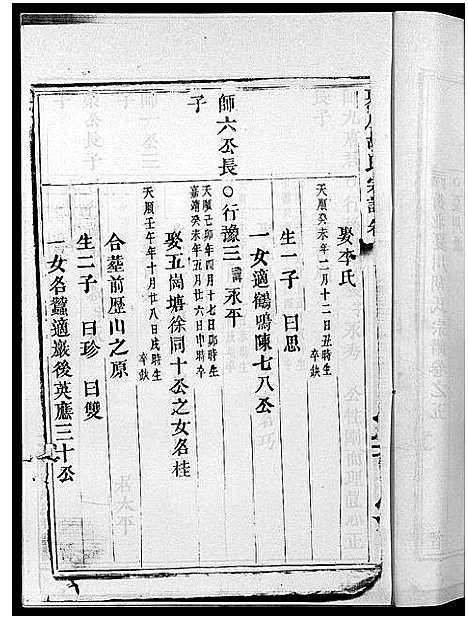 娶李氏
天順癸未年二月十二日丑時生
卒缺
生一子 曰思
一女適鶴鳴陳七八公
師六公長子
○行豫三 諱永平
天順己卯年四月十七日卯時生
嘉靖癸未年五月廿六日申時卒
娶五崗塘徐同十公之女名桂
天順壬午年十月廿八日戌時生
卒缺
合塟前歷山之原
生二子 曰珍 曰雙
一女名蠶適巖後英應三十公